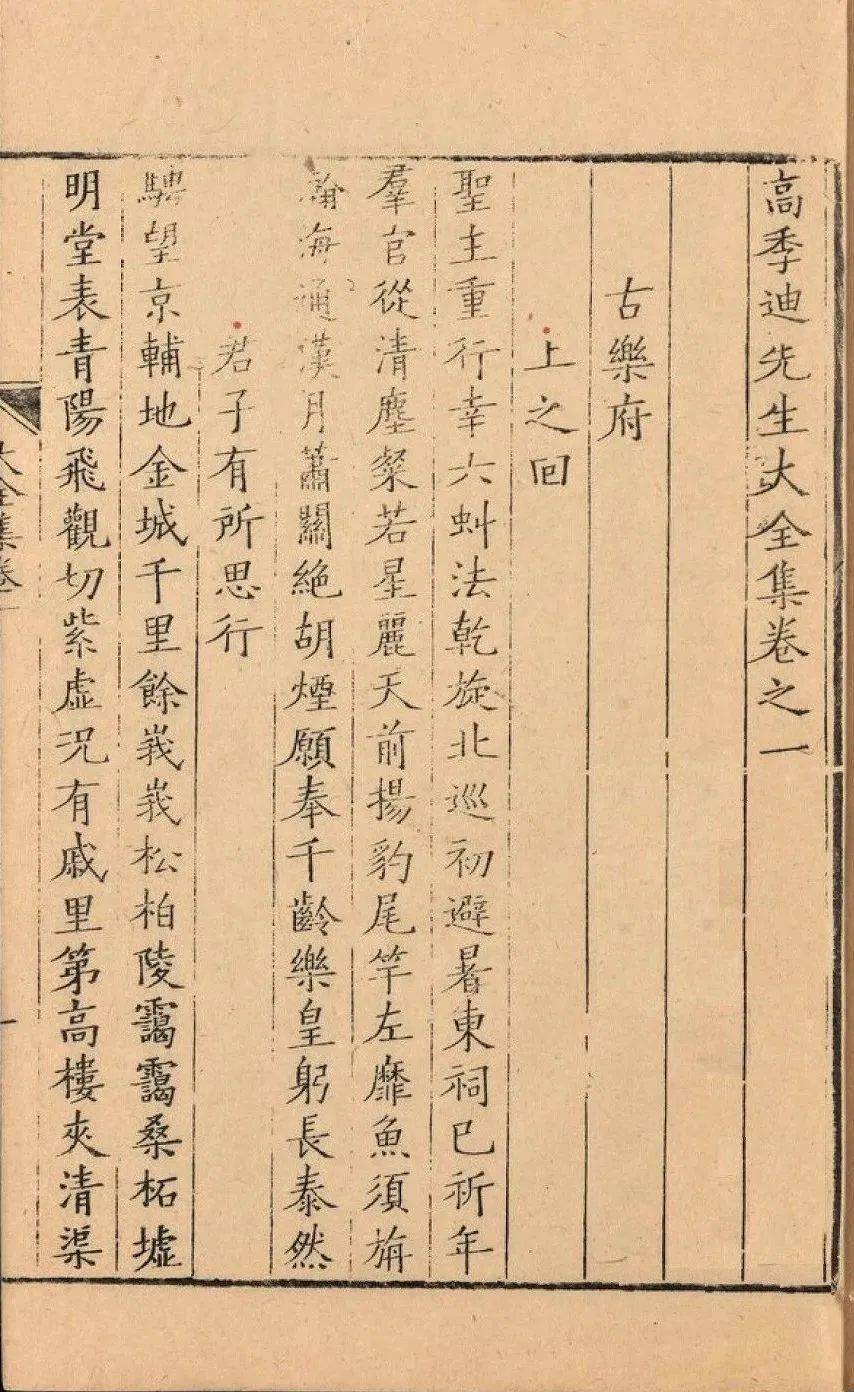 高季迪先生大全集卷之一
古樂府
上之回
聖主重行幸六虯法乾旋北巡初避暑東祠已祈年
羣官從清塵粲若星麗天前揚豹尾竿左靡魚須旃
瀚海通漢月蕭關絶胡煙願奉千齡樂皇躬長泰然
君子有所思行
騁望京輔地金城千里餘峩峩松柏陵靄靄桑柘墟
明堂表青陽飛觀切紫虛況有戚里第高樓夾清渠
大全集卷一
一